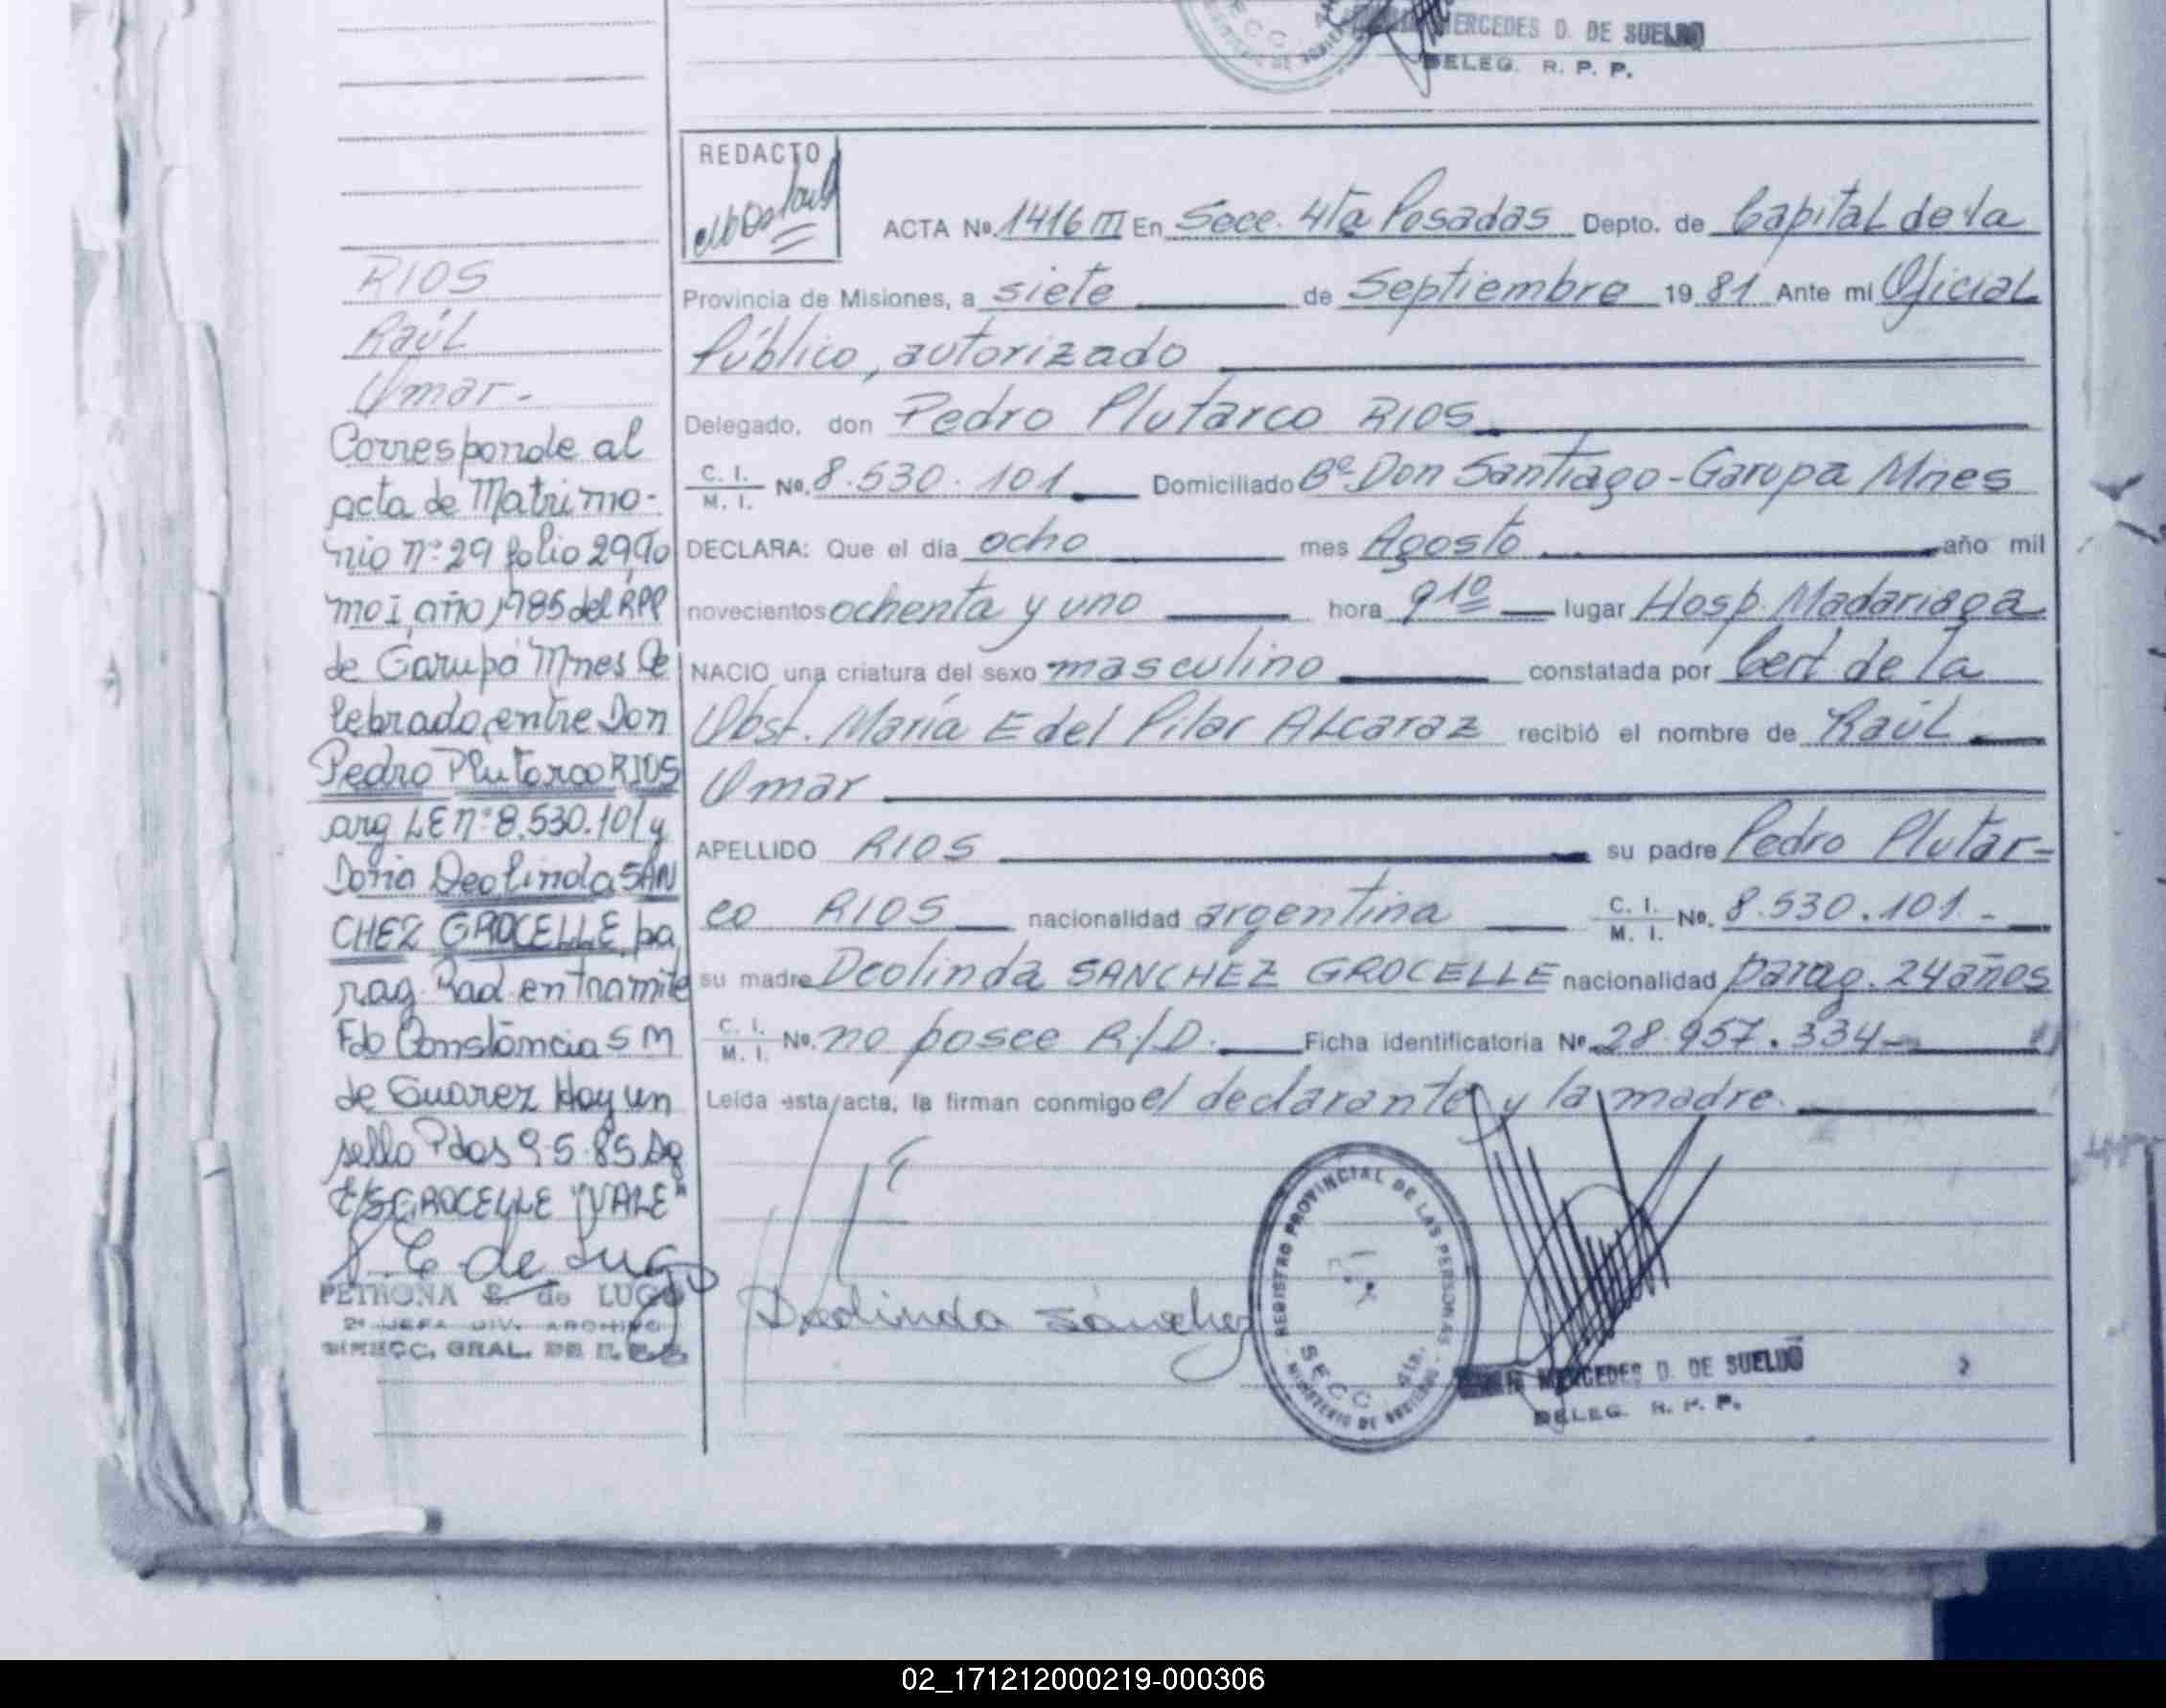 MERCEDES D. DE SUELDO
DELEG. R. P. P.
REDACTO
ACTA Nº. 1416 III En Secc. 4ta Posadas Depto. de Capital de la
Provincia de Misiones, a siete de Septiembre 1981 Ante mi Oficial
Público, autorizado
Delegado, don Pedro Plutarco RIOS
C. I.
M. I. Nº. 8.530.101 Domiciliado Bº Don Santiago-Garupa Mnes
DECLARA: Que el día ocho mes Agosto año mil
novecientos ochenta y uno hora 9 10 lugar Hosp. Madariaga
NACIO una criatura del sexo masculino constatada por Cert de la
Obst. María E del Pilar ALcaraz recibió el nombre de Raúl
Omar
APELLIDO RIOS su padre Pedro Plutar-
co RIOS nacionalidad argentina C. I.
M. I. Nº. 8.530.101.-
su madre Deolinda SANCHEZ GROCELLE nacionalidad parag. 24 años
C. I.
M. I. Nº. no posee R/D. Ficha identificatoria Nº. 28.957.334-
Leída esta acta, la firman conmigo el declarante y la madre.
Deolinda Sánchez
REGISTRO PROVINCIAL DE LAS PERSONAS
SECC 4ta.
MINISTERIO DE GOBIERNO
MERCEDES D. DE SUELDO
DELEG. R. P. P.
RIOS
Raúl
Omar.-
Corresponde al
acta de Matrimo-
nio nº 29 folio 29, To
mo I, año 1985 del RPP
de Garupá Mnes Ce
lebrado, entre Don
Pedro Plutarco RIOS
arg LE nº 8.530.101 y
Doña Deolinda SAN
CHEZ GROCELLE pa
rag. Rad. en tramite
Fdo Constancia S M
de Suarez Hay un
sello Pdas 9.5.85 Ag
E/S GROCELLE "VALE"
P. E de Lugo
PETRONA E. de LUGO
2ª JEFA DIV. ARCHIVO
DIRECC. GRAL. DE R. P. P.
02_171212000219-000306